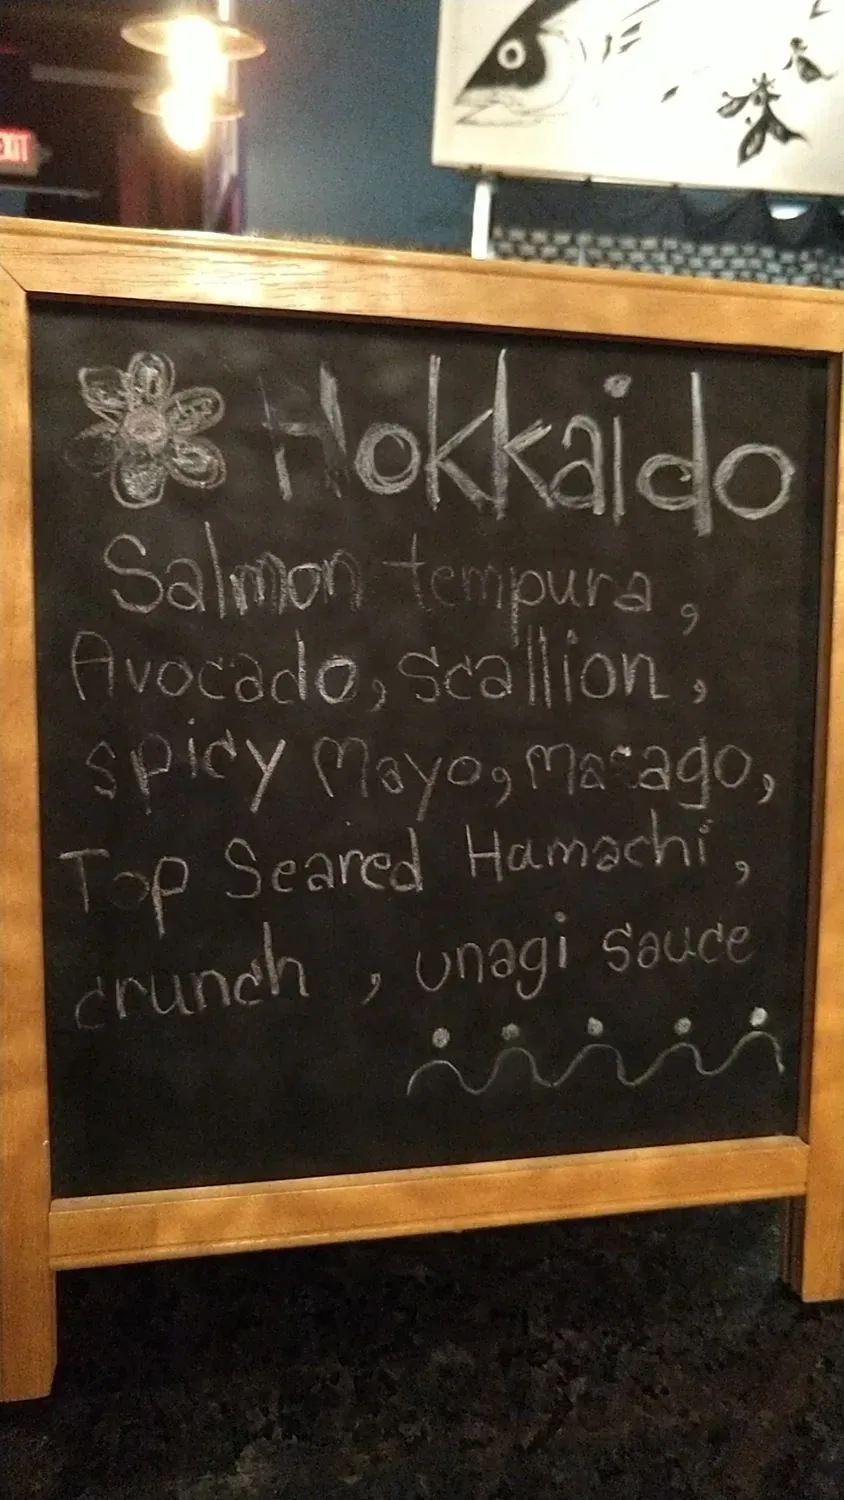 EXIT
Hokkaido
Salmon tempura,
Avocado, scallion,
spicy Mayo, Masago,
Top Seared Hamachi,
crunch, unagi sauce